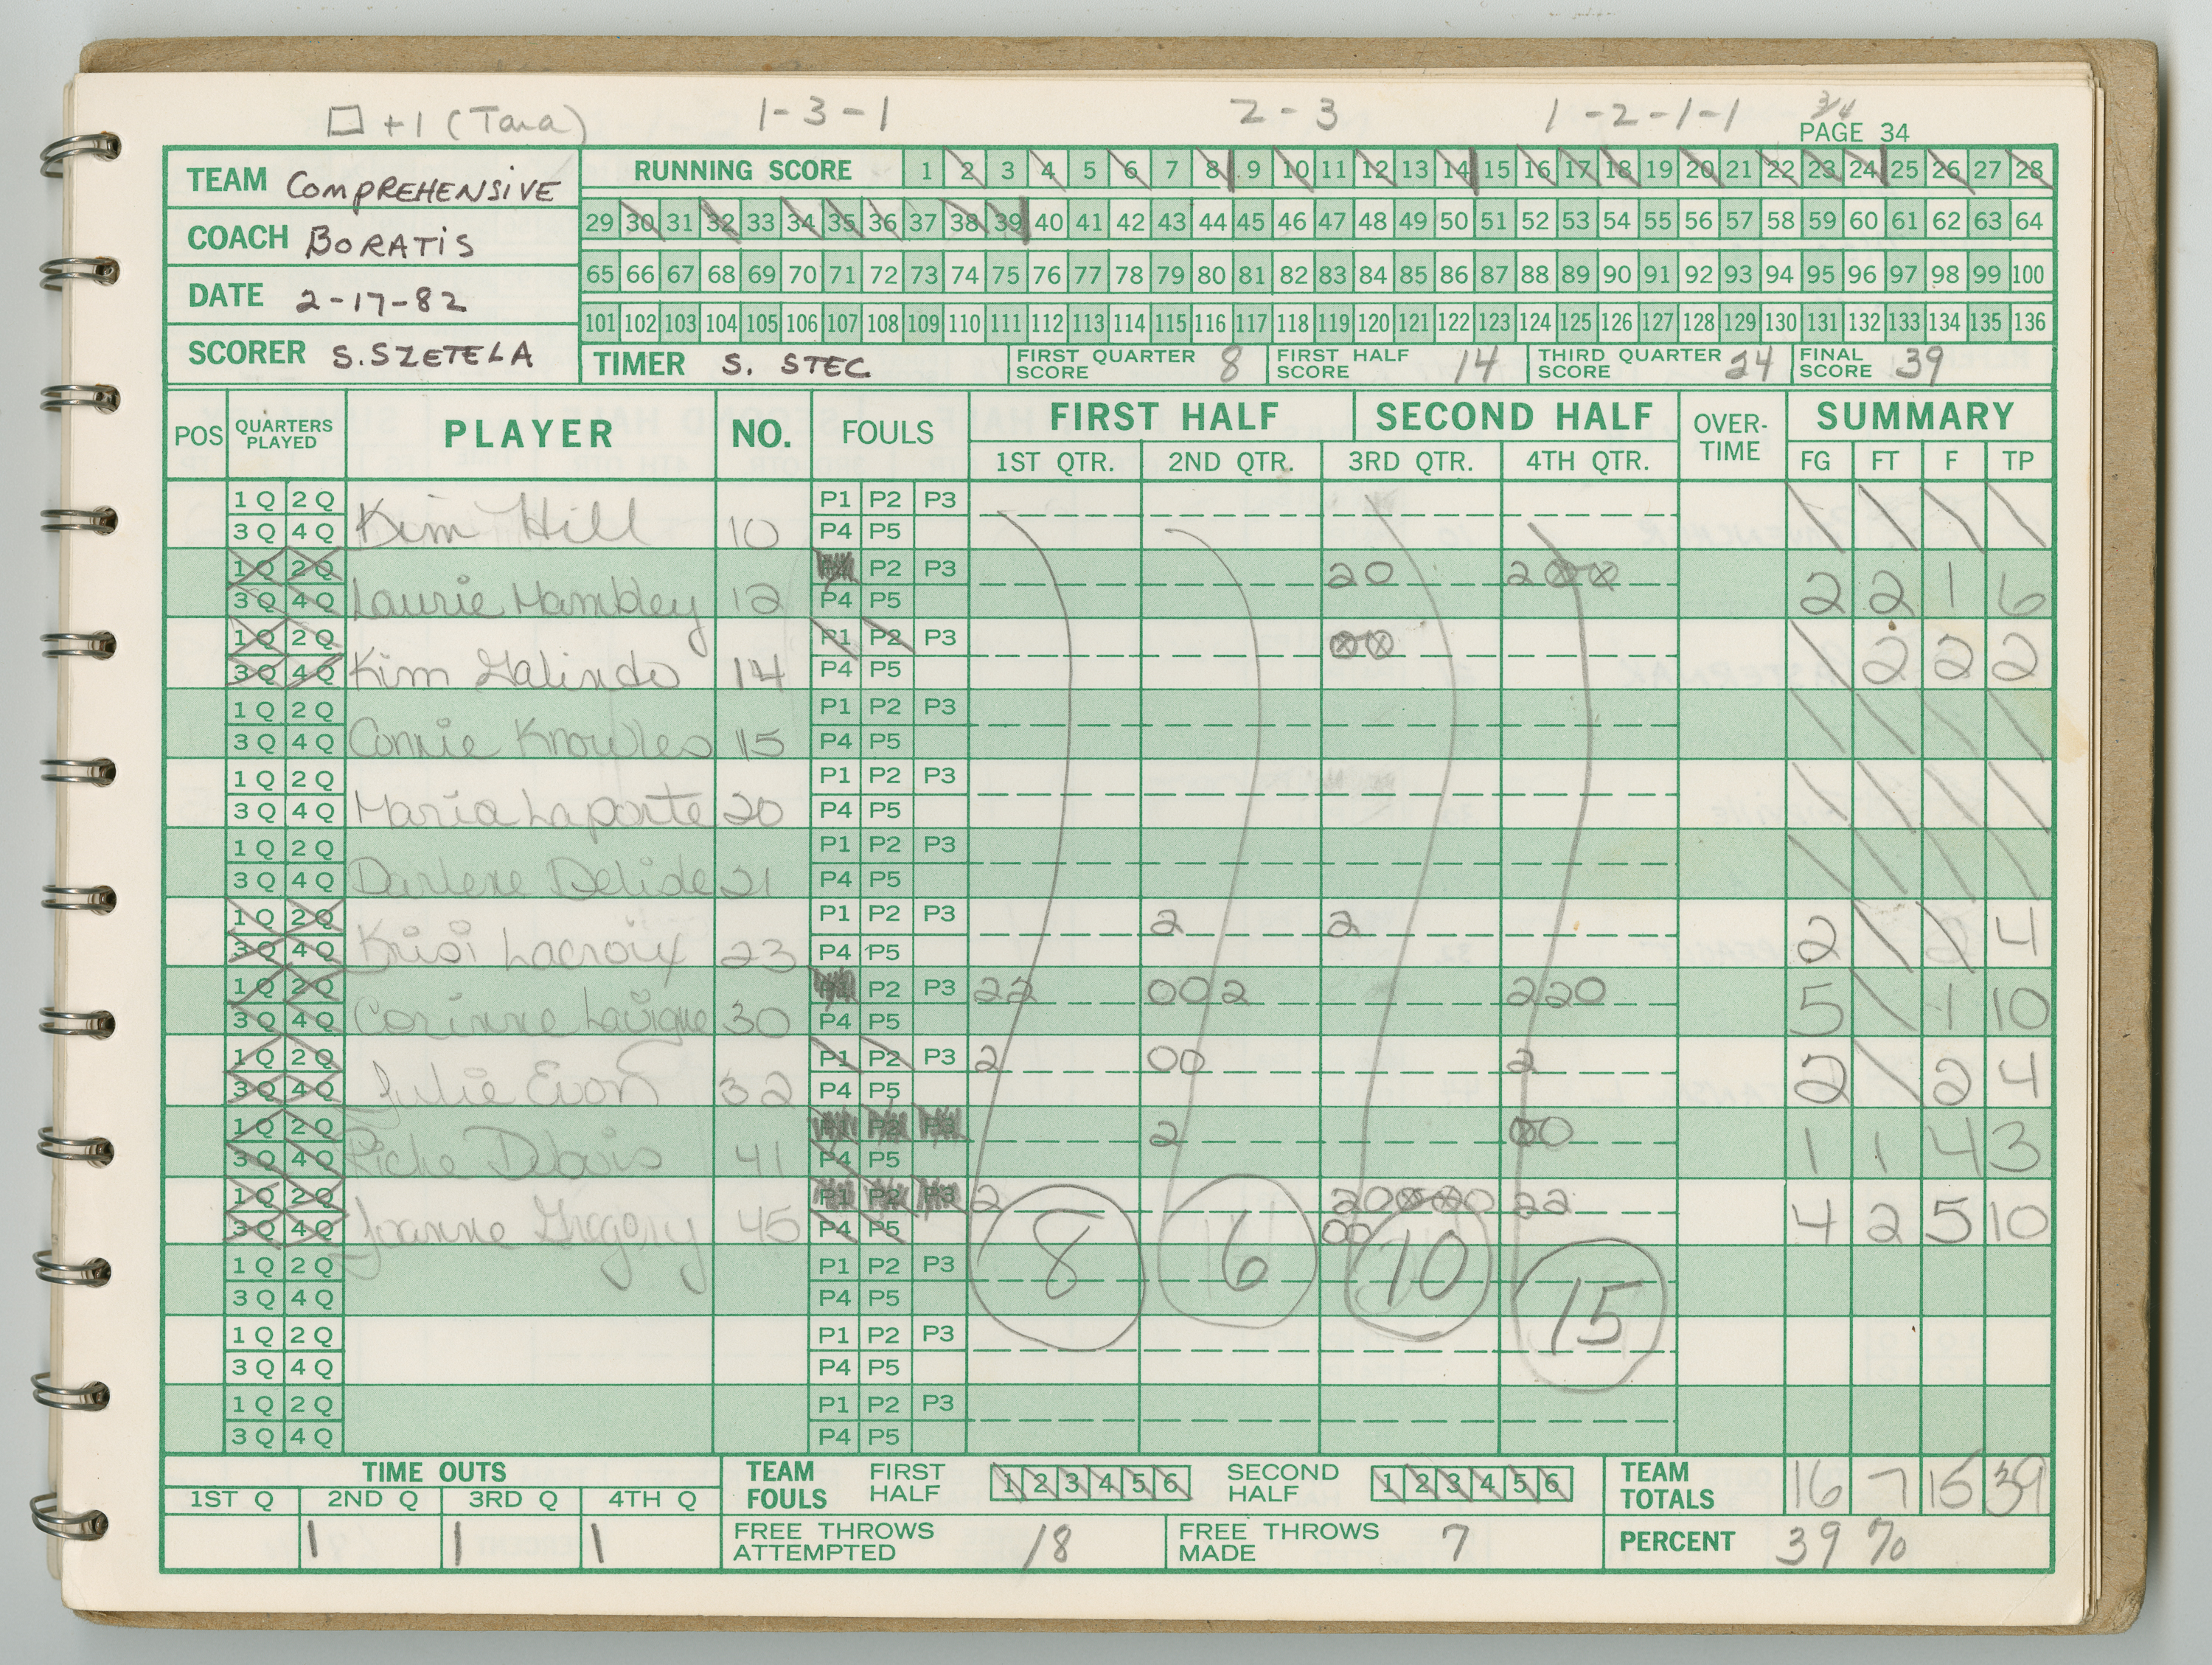 □ +1 (Tara) 1-3-1 2-3 1-2-1-1 3/4
PAGE 34
TEAM COMPREHENSIVE
COACH BORATIS
DATE 2-17-82
SCORER S. SZETELA
RUNNING SCORE 1 2 3 4 5 6 7 8 9 10 11 12 13 14 15 16 17 18 19 20 21 22 23 24 25 26 27 28
29 30 31 32 33 34 35 36 37 38 39 40 41 42 43 44 45 46 47 48 49 50 51 52 53 54 55 56 57 58 59 60 61 62 63 64
65 66 67 68 69 70 71 72 73 74 75 76 77 78 79 80 81 82 83 84 85 86 87 88 89 90 91 92 93 94 95 96 97 98 99 100
101 102 103 104 105 106 107 108 109 110 111 112 113 114 115 116 117 118 119 120 121 122 123 124 125 126 127 128 129 130 131 132 133 134 135 136
TIMER S. STEC FIRST QUARTER SCORE 8 FIRST HALF SCORE 14 THIRD QUARTER SCORE 24 FINAL SCORE 39
POS QUARTERS PLAYED PLAYER NO. FOULS FIRST HALF SECOND HALF OVER-TIME SUMMARY
1ST QTR. 2ND QTR. 3RD QTR. 4TH QTR. FG FT F TP
1Q 2Q P1 P2 P3
3Q 4Q Kim Hill 10 P4 P5 \ \ \ \
1Q 2Q P2 P3 20 2⊗⊗
3Q 4Q Laurie 12 P4 P5 2 2 1 6
1Q 2Q P1 P2 P3 ⊗⊗
3Q 4Q Kim Galindo 14 P4 P5 \ 2 2 2
1Q 2Q P1 P2 P3
3Q 4Q Connie Knowles 15 P4 P5 \ \ \ \
1Q 2Q P1 P2 P3
3Q 4Q Maria Laporte 20 P4 P5 \ \ \ \
1Q 2Q P1 P2 P3
3Q 4Q Darlene Delisle 21 P4 P5 \ \ \ \
1Q 2Q P1 P2 P3 2 2
3Q 4Q Krisi Lacroix 23 P4 P5 2 \ \ 4
1Q 2Q P1 P2 P3 22 002 220
3Q 4Q Corinne Lavigne 30 P4 P5 5 \ 1 10
1Q 2Q P1 P2 P3 2 00 2
3Q 4Q Julie Evon 32 P4 P5 2 \ 2 4
1Q 2Q P1 P2 P3 2 ⊗0
3Q 4Q 41 P4 P5 1 1 4 3
1Q 2Q P1 P2 P3 2 20⊗⊗20 22
3Q 4Q Joanne Gregory 45 P4 P5 00 4 2 5 10
1Q 2Q P1 P2 P3 8 6 10 15
3Q 4Q P4 P5
1Q 2Q P1 P2 P3
3Q 4Q P4 P5
1Q 2Q P1 P2 P3
3Q 4Q P4 P5
TIME OUTS
1ST Q 2ND Q 3RD Q 4TH Q
1 1 1
TEAM FOULS FIRST HALF 1 2 3 4 5 6 SECOND HALF 1 2 3 4 5 6 TEAM TOTALS 16 7 15 39
FREE THROWS ATTEMPTED 18 FREE THROWS MADE 7 PERCENT 39 %